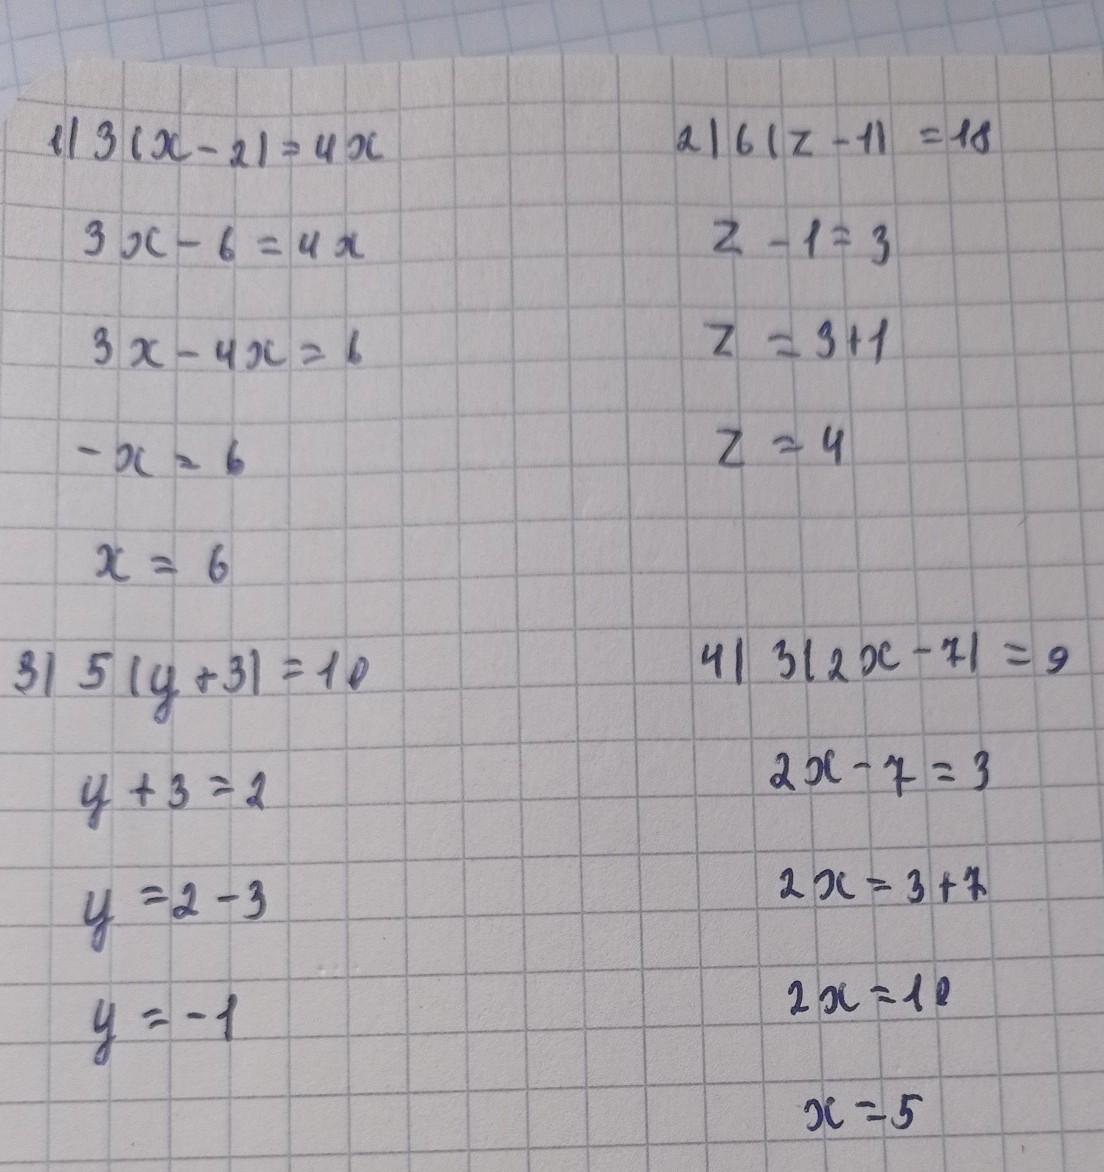 1) 3(x-2)=4x
3x-6=4x
3x-4x=6
-x=6
x=6
2) 6(z-1)=18
z-1=3
z=3+1
z=4
3) 5(y+3)=10
y+3=2
y=2-3
y=-1
4) 3(2x-7)=9
2x-7=3
2x=3+7
2x=10
x=5